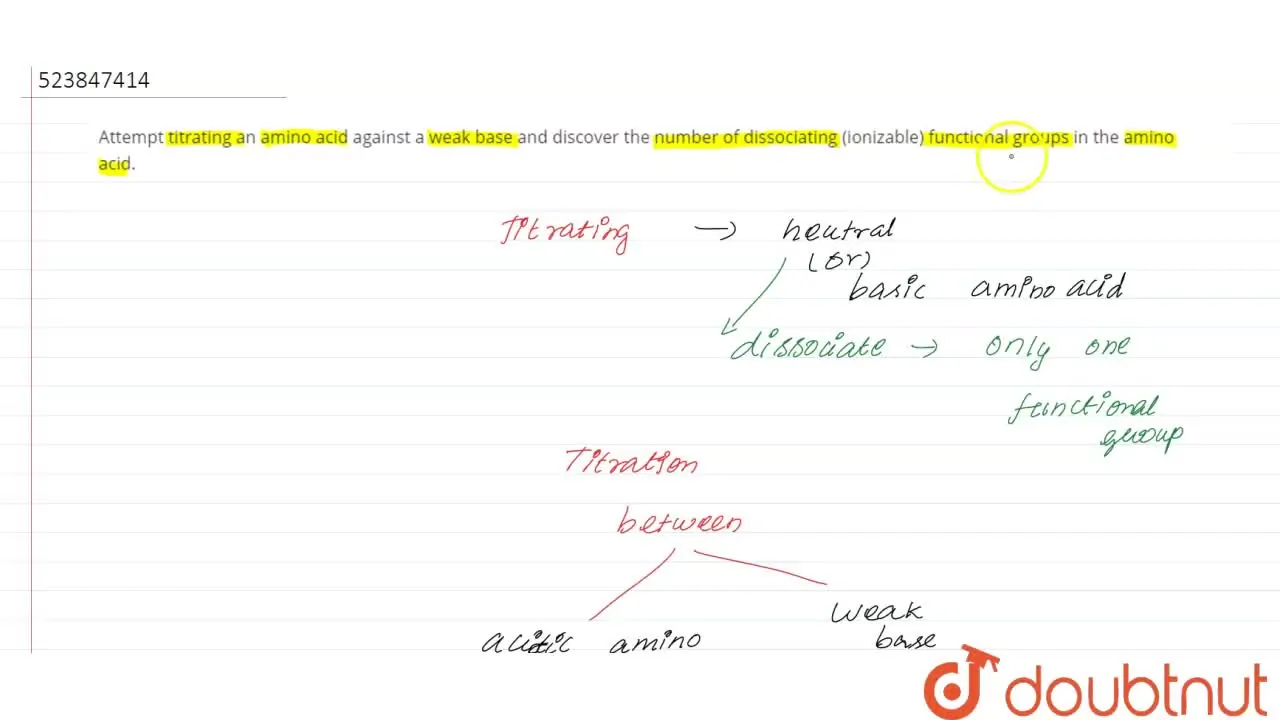 523847414
Attempt titrating an amino acid against a weak base and discover the number of dissociating (ionizable) functional groups in the amino
acid.
Titrating → neutral
(or)
basic amino acid
dissociate → only one
functional
group
Titration
between
weak
base
acidic amino
doubtnut